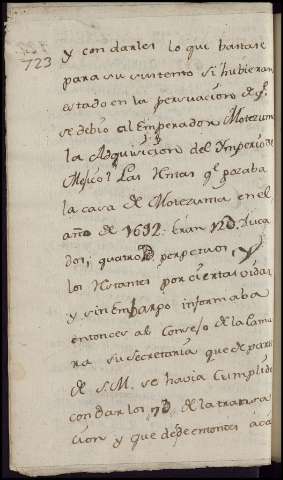 723
y con darles lo que bastase
para su sustento si hubieran
estado en la persuacion de q.e
se debio al Emperador Motezuma
la Adquisicion del Ymperio de
Mejico? Las Rentas q.e gozaba
la casa de Motezuma en el
año de 1692. Eran 12D. Duca
dos; quatro D perpetuos, y
los restantes por ciertas vidas
y sin Embargo informaba
entonces al Consejo de la Cama
ra su secretaria que de parte
de S.M. se havia Cumplido
con dar los D. de la transa
cion y que desde entonces aca